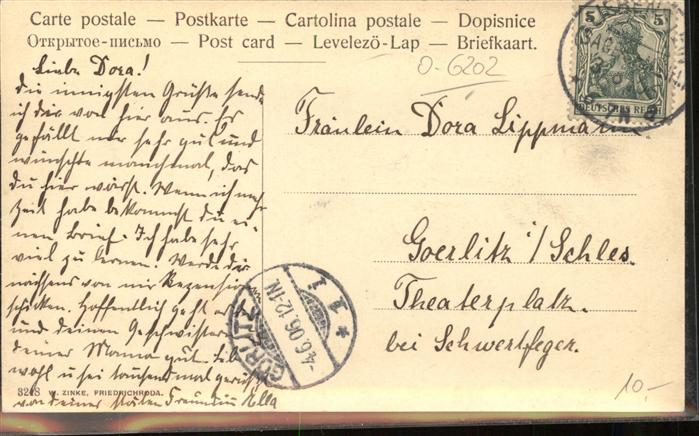 Carte postale — Postkarte — Cartolina postale — Dopisnice
Открытое-письмо — Post card — Levelező-Lap — Briefkaart.
O-6202
5 5
DEUTSCHES REICH
Liebe Dora!
die innigsten Grüße sende
ich dir von hier aus. Es
gefällt mir sehr gut und
wünschte manchmal, das
du hier wärst. Wenn ich mehr
Zeit habe bekommst du ei-
nen Brief. Ich habe sehr
viel zu lernen. Werde dir
nächstens von mir
schicken. Hoffentlich geht es
und deinen Geschwister
deiner Mama gut. Leb
wohl u sei tausendmal gegrüßt
von deiner Freundin Ella
Fräulein Dora Lippmann
Goerlitz i/Schles.
Theaterplatz.
bei Schwertfeger.
GÖRLITZ
-4.6.06.12-1N.
* 1
3248 W. ZINKE, FRIEDRICHRODA.
10.-